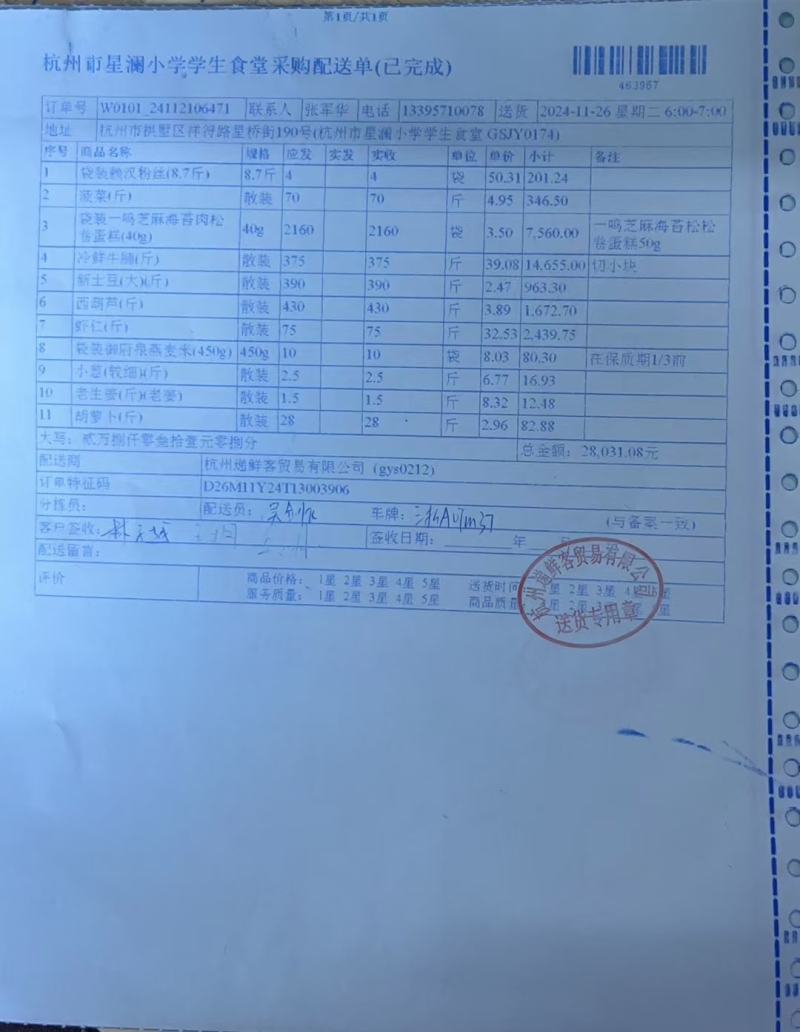 第1页/共1页
杭州市星澜小学学生食堂采购配送单(已完成)
463957
订单号 W0101_24112106471 联系人 张军华 电话 13395710078 送货 2024-11-26 星期二 6:00-7:00
地址 杭州市拱墅区祥符路星桥街190号(杭州市星澜小学学生食堂 GSJY0174)
序号 商品名称 规格 应发 实发 实收 单位 单价 小计 备注
1 袋装赖汉粉丝(8.7斤) 8.7斤 4 4 袋 50.31 201.24
2 菠菜(斤) 散装 70 70 斤 4.95 346.50
3 袋装一鸣芝麻海苔肉松卷蛋糕(40g) 40g 2160 2160 袋 3.50 7,560.00 一鸣芝麻海苔松松卷蛋糕50g
4 冷鲜牛腩(斤) 散装 375 375 斤 39.08 14,655.00 切小块
5 新土豆(大)(斤) 散装 390 390 斤 2.47 963.30
6 西葫芦(斤) 散装 430 430 斤 3.89 1,672.70
7 虾仁(斤) 散装 75 75 斤 32.53 2,439.75
8 袋装御府泉燕麦米(450g) 450g 10 10 袋 8.03 80.30 在保质期1/3前
9 小葱(较细)(斤) 散装 2.5 2.5 斤 6.77 16.93
10 老生姜(斤)(老姜) 散装 1.5 1.5 斤 8.32 12.48
11 胡萝卜(斤) 散装 28 28 斤 2.96 82.88
大写：贰万捌仟零叁拾壹元零捌分 总金额：28,031.08元
配送商 杭州递鲜客贸易有限公司 (gys0212)
订单特征码 D26M11Y24T13003906
分拣员： 配送员： 车牌： (与备案一致)
客户签收： 签收日期： 年 月
配送留言：
评价 商品价格： 1星 2星 3星 4星 5星 送货时间 星 2星 3星 4星 星
服务质量： 1星 2星 3星 4星 5星 商品质量 星 2星 3星 星
杭州递鲜客贸易有限公司
送货专用章